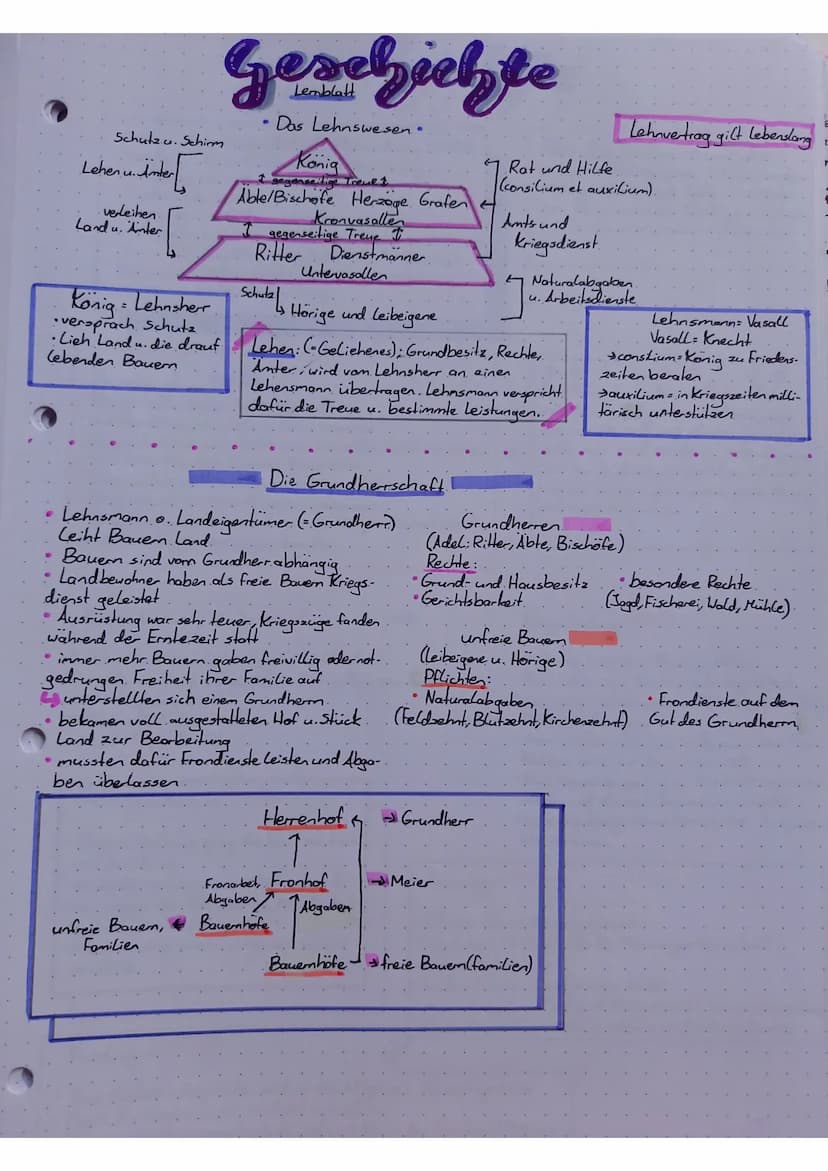 Geschichte
Lernblatt
• Das Lehnswesen •
Lehnvertrag gilt Lebenslang
Schutz u. Schirm
Lehen u. Ämter
verleihen
Land u. Ämter
König
↕ gegenseitige Treue ↕
Äbte/Bischöfe Herzöge Grafen
Kronvasallen
↕ gegenseitige Treue ↕
Ritter Dienstmänner
Untervasallen
Rat und Hilfe
(consilium et auxilium)
Amts und
Kriegsdienst
Naturalabgaben
u. Arbeitsdienste
Schutz
Hörige und Leibeigene
König = Lehnsherr
• versprach Schutz
• Lieh Land u. die drauf
lebenden Bauern
Lehen: (=Geliehenes); Grundbesitz, Rechte,
Ämter, wird vom Lehnsherr an einen
Lehensmann übertragen. Lehnsmann verspricht
dafür die Treue u. bestimmte Leistungen.
Lehnsmann = Vasall
Vasall = Knecht
→ consilium = König zu Friedens-
zeiten beraten
→ auxilium = in Kriegszeiten milli-
tärisch unterstützen
Die Grundherrschaft
• Lehnsmann o. Landeigentümer (= Grundherr)
leiht Bauern Land
• Bauern sind vom Grundherr abhängig
• Landbewohner haben als freie Bauern Kriegs-
dienst geleistet
• Ausrüstung war sehr teuer, Kriegszüge fanden
während der Erntezeit statt
• immer mehr Bauern gaben freiwillig oder not-
gedrungen Freiheit ihrer Familie auf
↳ unterstellten sich einem Grundherrn
• bekamen voll ausgestatteten Hof u. Stück
Land zur Bearbeitung
• mussten dafür Frondienste leisten und Abga-
ben überlassen
Grundherren
(Adel: Ritter, Äbte, Bischöfe)
Rechte:
• Grund- und Hausbesitz
• Gerichtsbarkeit
• besondere Rechte
(Jagd, Fischerei, Wald, Mühle)
unfreie Bauern
(Leibeigene u. Hörige)
Pflichten:
• Naturalabgaben
(Feldzehnt, Blutzehnt, Kirchenzehnt)
• Frondienste auf dem
Gut des Grundherrn
Herrenhof → Grundherr
Fronarbeit,
Abgaben
Fronhof → Meier
Abgaben
unfreie Bauern,
Familien
← Bauernhöfe
Bauernhöfe → freie Bauern(familien)